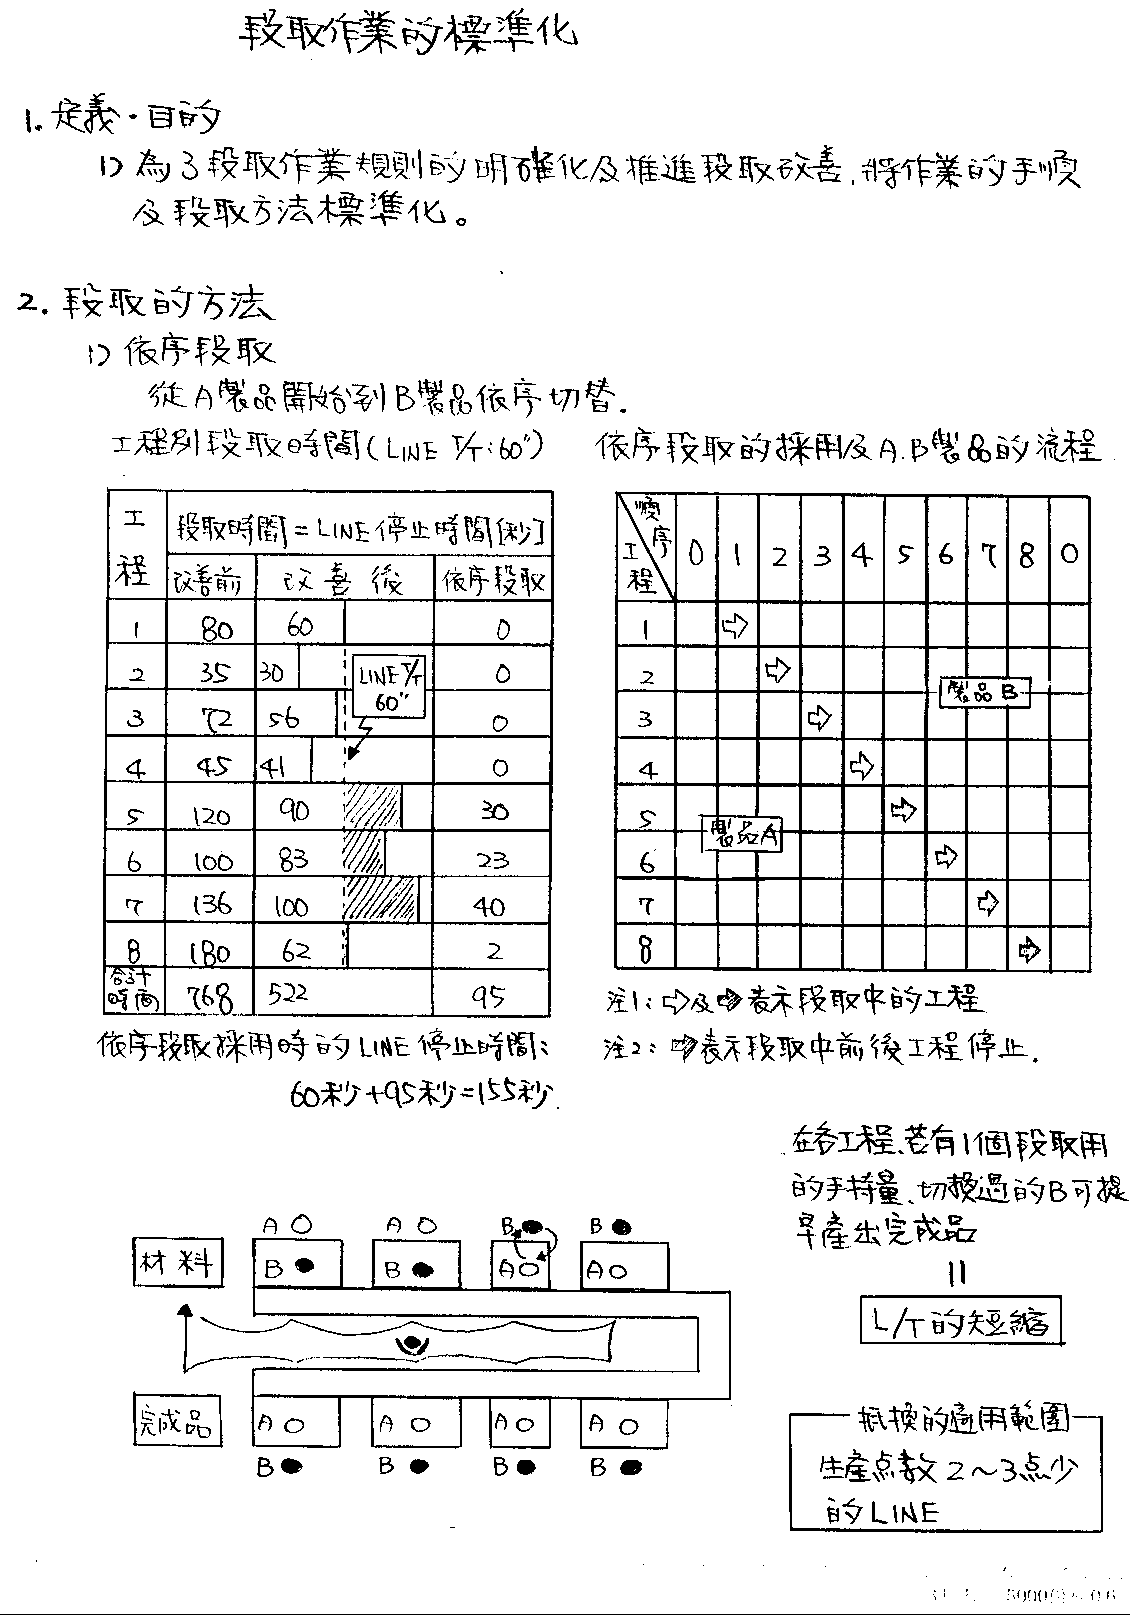 段取作業的標準化
1. 定義・目的
1) 為了段取作業規則的明確化及推進段取改善,將作業的手順
及段取方法標準化。
2. 段取的方法
1) 依序段取
從A製品開始到B製品依序切替.
工程別段取時間(LINE T/T:60")
工程 段取時間=LINE停止時間[秒]
改善前 改善後 依序段取
1 80 60 0
2 35 30 0
3 72 56 0
4 45 41 0
5 120 90 30
6 100 83 23
7 136 100 40
8 180 62 2
合計時間 768 522 95
LINE T/T
60"
依序段取採用時的LINE停止時間:
60秒+95秒=155秒.
依序段取的採用及A.B製品的流程
順序
工程
0 1 2 3 4 5 6 7 8 0
1
2
3
4
5
6
7
8
製品B
製品A
注1: ⇨及⇨表示段取中的工程
注2: ⇨表示段取中前後工程停止.
在各工程、若有1個段取用
的手持量、切換過的B可提
早產出完成品
=
L/T的短縮
A A B B
材料 B B A A
完成品 A A A A
B B B B
抵換的適用範圍
生產点数2~3点少
的LINE